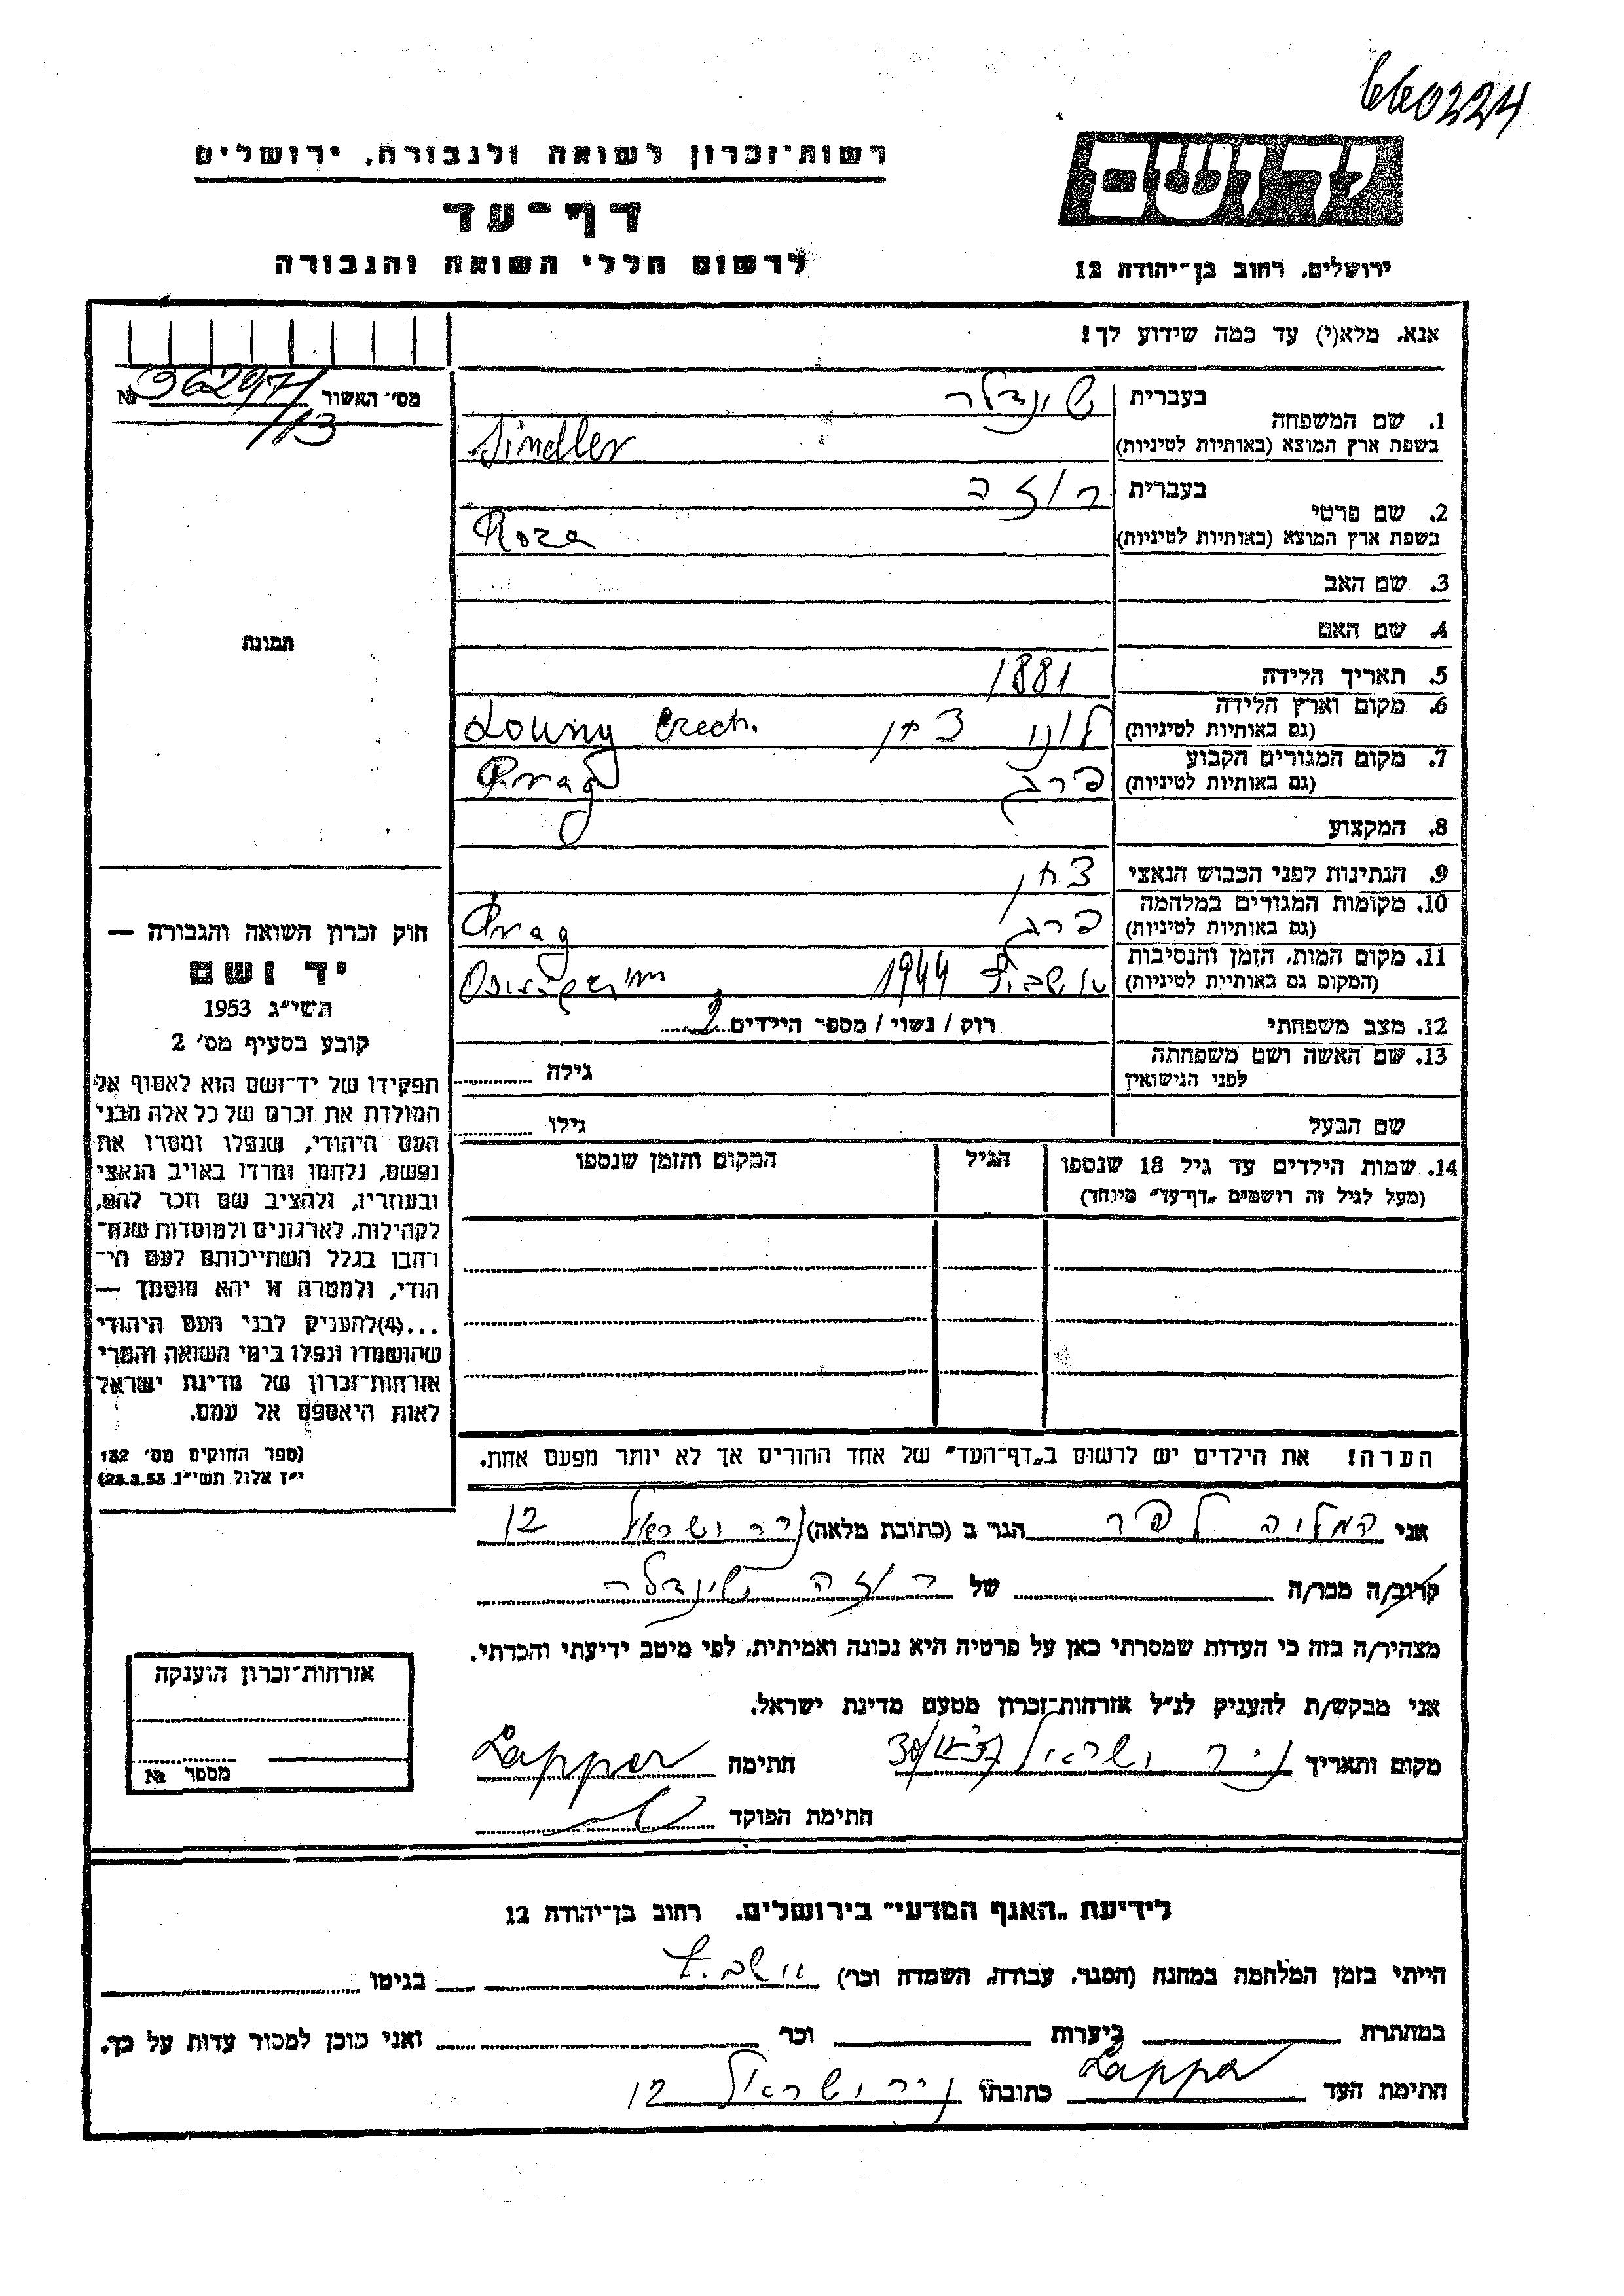 660224
יד ושם
ירושלים, רחוב בן־יהודה 12
רשות־זכרון לשואה ולגבורה, ירושלים
דף־עד
לרשום חללי השואה והגבורה
אנא, מלא(י) עד כמה שידוע לך!
מס׳ האשור № 36297/
113
תמונה
1. שם המשפחה
בעברית שינדלר
בשפת ארץ המוצא (באותיות לטיניות) Šindler
2. שם פרטי
בעברית רוזה
בשפת ארץ המוצא (באותיות לטיניות) Roza
3. שם האב
4. שם האם
5. תאריך הלידה 1881
6. מקום וארץ הלידה
(גם באותיות לטיניות) לוני צ׳כ Louny Czech.
7. מקום המגורים הקבוע
(גם באותיות לטיניות) פרג Prag
8. המקצוע
9. הנתינות לפני הכבוש הנאצי
10. מקומות המגורים במלחמה
(גם באותיות לטיניות) פרג Prag
11. מקום המות, הזמן והנסיבות
(המקום גם באותיות לטיניות) אושביץ 1944
12. מצב משפחתי רוק / נשוי / מספר הילדים 2
13. שם האשה ושם משפחתה
לפני הנישואין גילה
שם הבעל גילו
14. שמות הילדים עד גיל 18 שנספו הגיל המקום והזמן שנספו
(מעל לגיל זה רושמים „דף־עד״ מיוחד)
הערה! את הילדים יש לרשום ב„דף־העד״ של אחד ההורים אך לא יותר מפעם אחת.
חוק זכרון השואה והגבורה —
יד ושם
תשי״ג 1953
קובע בסעיף מס׳ 2
תפקידו של יד־ושם הוא לאסוף אל
המולדת את זכרם של כל אלה מבני
העם היהודי, שנפלו ומסרו את
נפשם, נלחמו ומרדו באויב הנאצי
ובעוזריו, ולהציב שם וזכר להם,
לקהילות, לארגונים ולמוסדות שנח־
רבו בגלל השתייכותם לעם הי־
הודי, ולמטרה זו יהא מוסמך —
...(4)להעניק לבני העם היהודי
שהושמדו ונפלו בימי השואה והמרי
אזרחות־זכרון של מדינת ישראל
לאות היאספם אל עמם.
(ספר החוקים מס׳ 132
י״ז אלול תשי״ג 28.8.53)
אני לפר הגר ב (כתובת מלאה) ניר ישראל 12
קרוב/ה מכר/ה של רוזה שינדלר
מצהיר/ה בזה כי העדות שמסרתי כאן על פרטיה היא נכונה ואמיתית, לפי מיטב ידיעתי והכרתי.
אני מבקש/ת להעניק לנ״ל אזרחות־זכרון מטעם מדינת ישראל.
מקום ותאריך ניר ישראל חתימה Lapper
חתימת הפוקד
אזרחות־זכרון הוענקה
מספר №
לידיעת „האגף המדעי״ בירושלים, רחוב בן־יהודה 12
הייתי בזמן המלחמה במחנה (הסגר, עבודה, השמדה וכו׳) אושביץ בגיטו
במחתרת ביערות וכו׳ ואני מוכן למסור עדות על כך.
חתימת העד Lapper כתובתו ניר ישראל 12